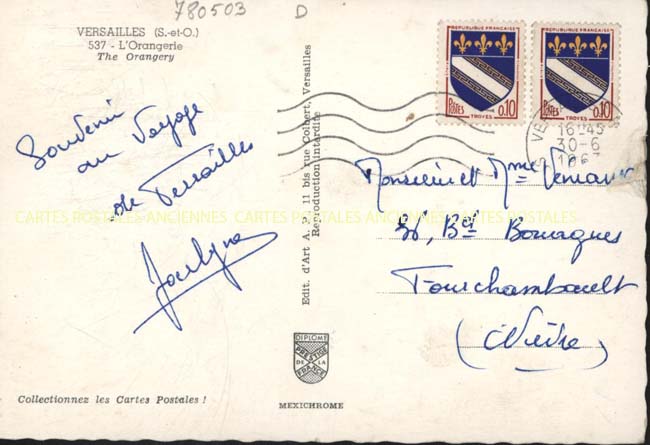 780503 D
VERSAILLES (S.-et-O.)
537 - L'Orangerie
The Orangery
Souvenir
au Voyage
de Versailles
Edit. d'Art A. P., 11 bis rue Colbert, Versailles
Reproduction interdite
REPUBLIQUE FRANÇAISE
POSTES 0,10
TROYES
REPUBLIQUE FRANÇAISE
POSTES 0,10
TROYES
16H45
30-6
Monsieur et Mme
36, Bd
Fourchambault
(Nièvre)
CARTES POSTALES ANCIENNES CARTES POSTALES ANCIENNES CARTES POSTALES
DIPLOME
PRESTIGE
DE LA
FRANCE
Collectionnez les Cartes Postales !
MEXICHROME